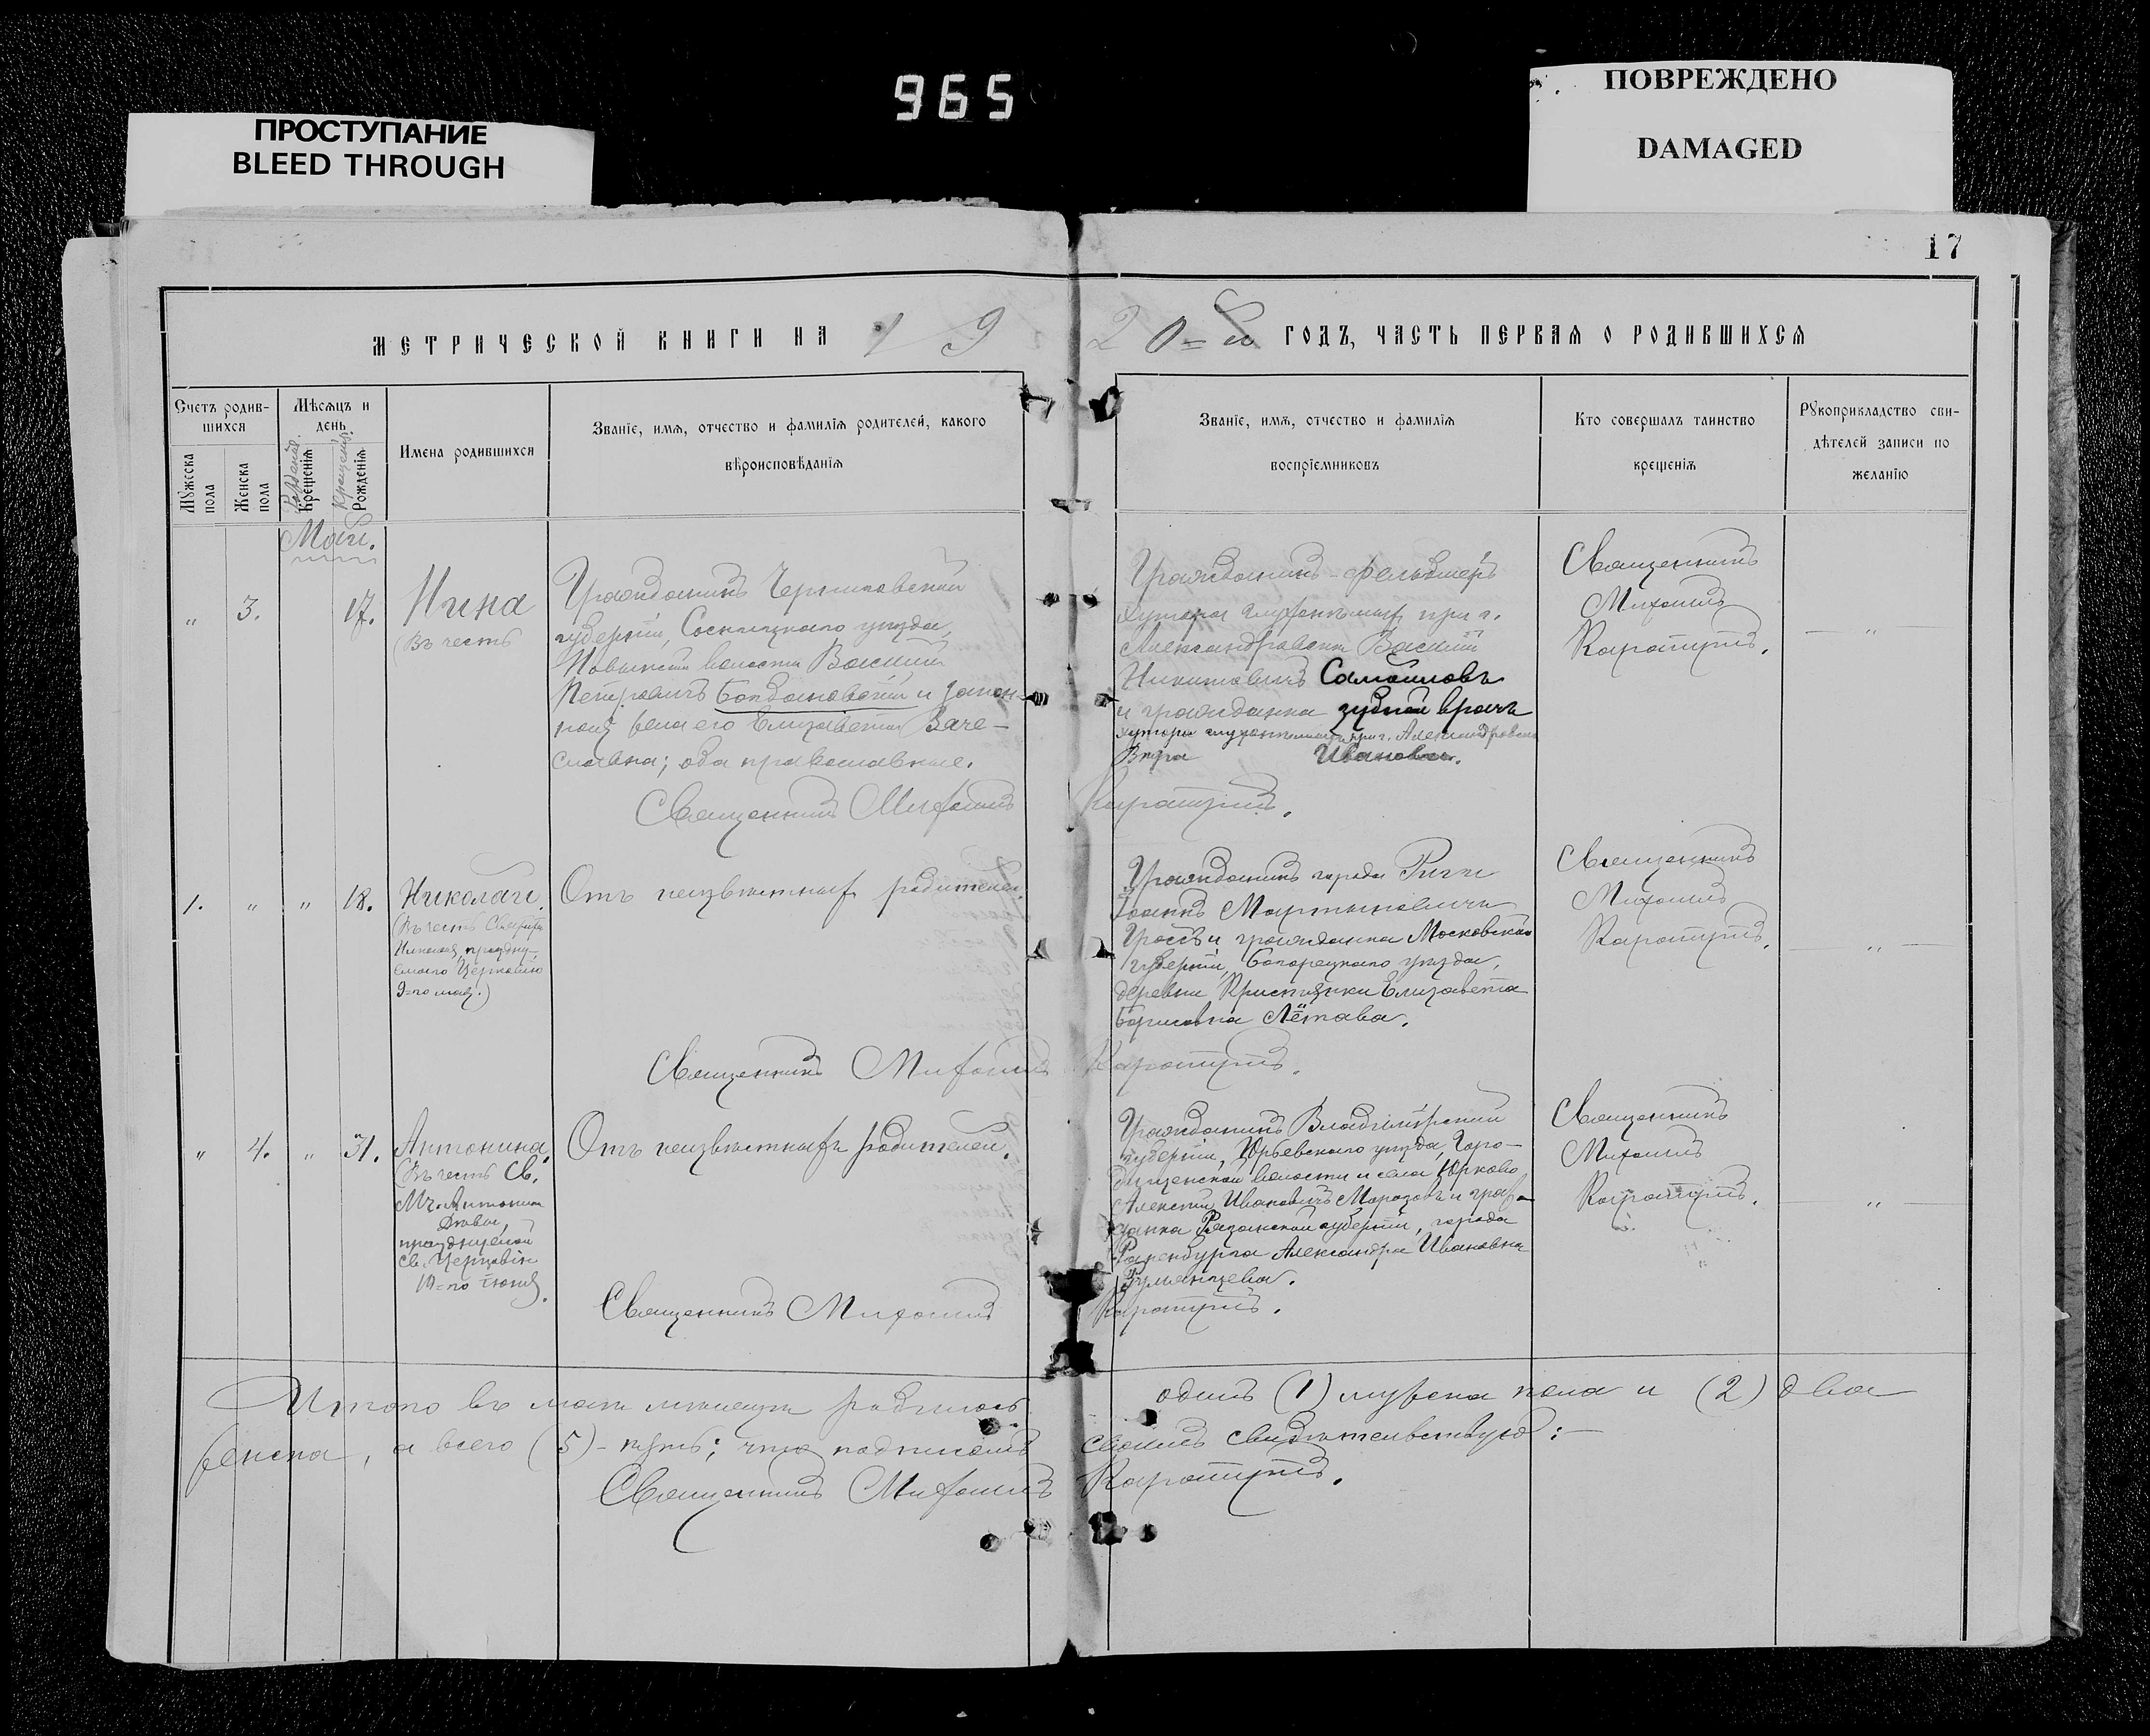 965
ПРОСТУПАНИЕ
BLEED THROUGH
ПОВРЕЖДЕНО
DAMAGED
17
МЕТРИЧЕСКОЙ КНИГИ НА 19
20=й ГОДЪ, ЧАСТЬ ПЕРВАЯ О РОДИВШИХСЯ
Счетъ родив-
шихся
Мужеска
пола
Женска
пола
Мѣсяцъ и
день
Крещенія
Рожденія
Крещенія
Имена родившихся
Званіе, имя, отчество и фамилія родителей, какого
вѣроисповѣданія
Званіе, имя, отчество и фамилія
воспріемниковъ
Кто совершалъ таинство
крещенія
Рукоприкладство сви-
дѣтелей записи по
желанію
Май.
" 3. 17.
Нина
(Въ честь
Гражданинъ Черниговской
губерніи, Сосницкаго уѣзда,
волости Василій
Петровичъ Богдановскій и закон-
ная жена его Елизавета Вяче-
славна; оба православные.
Гражданинъ-фельдшеръ
хутора глухонѣмыхъ при г.
Александровскѣ Василій
Никитовичъ Самойловъ
и гражданка зубной врачъ
хутора глухонѣмыхъ при г. Александровскѣ
Вѣра Иванова.
Священникъ
Михаилъ
"
Священникъ Михаилъ
1. " " 18.
Николай.
(Въ честь Святителя
Николая, праздну-
емаго Церковію
9=го мая.)
Отъ неизвѣстныхъ родителей.
Гражданинъ города Риги
Іоаннъ Мартыновичъ
Гроссъ и гражданка Московской
губерніи, Богородскаго уѣзда,
деревни Елизавета
Борисовна
Священникъ
Михаилъ
"
Священникъ Михаилъ
" 4. " 31.
Антонина.
(Въ честь Св.
Мч. Антонины
Дѣвы,
празднуемой
св. Церковію
10=го Іюня.
Отъ неизвѣстныхъ родителей.
Гражданинъ Владимірской
губерніи, Юрьевскаго уѣзда, Горо-
дищенской волости и села Юрково
Алексѣй Ивановичъ Морозовъ и граж-
данка Рязанской губерніи, города
Раненбурга Александра Ивановна
Румянцева.
Священникъ
Михаилъ
"
Священникъ Михаилъ
Итого въ маѣ мѣсяцѣ родилось одинъ (1) мужска пола и (2) два
женска, а всего (5) - пять; что подписомъ своимъ свидѣтельствую:-
Священникъ Михаилъ